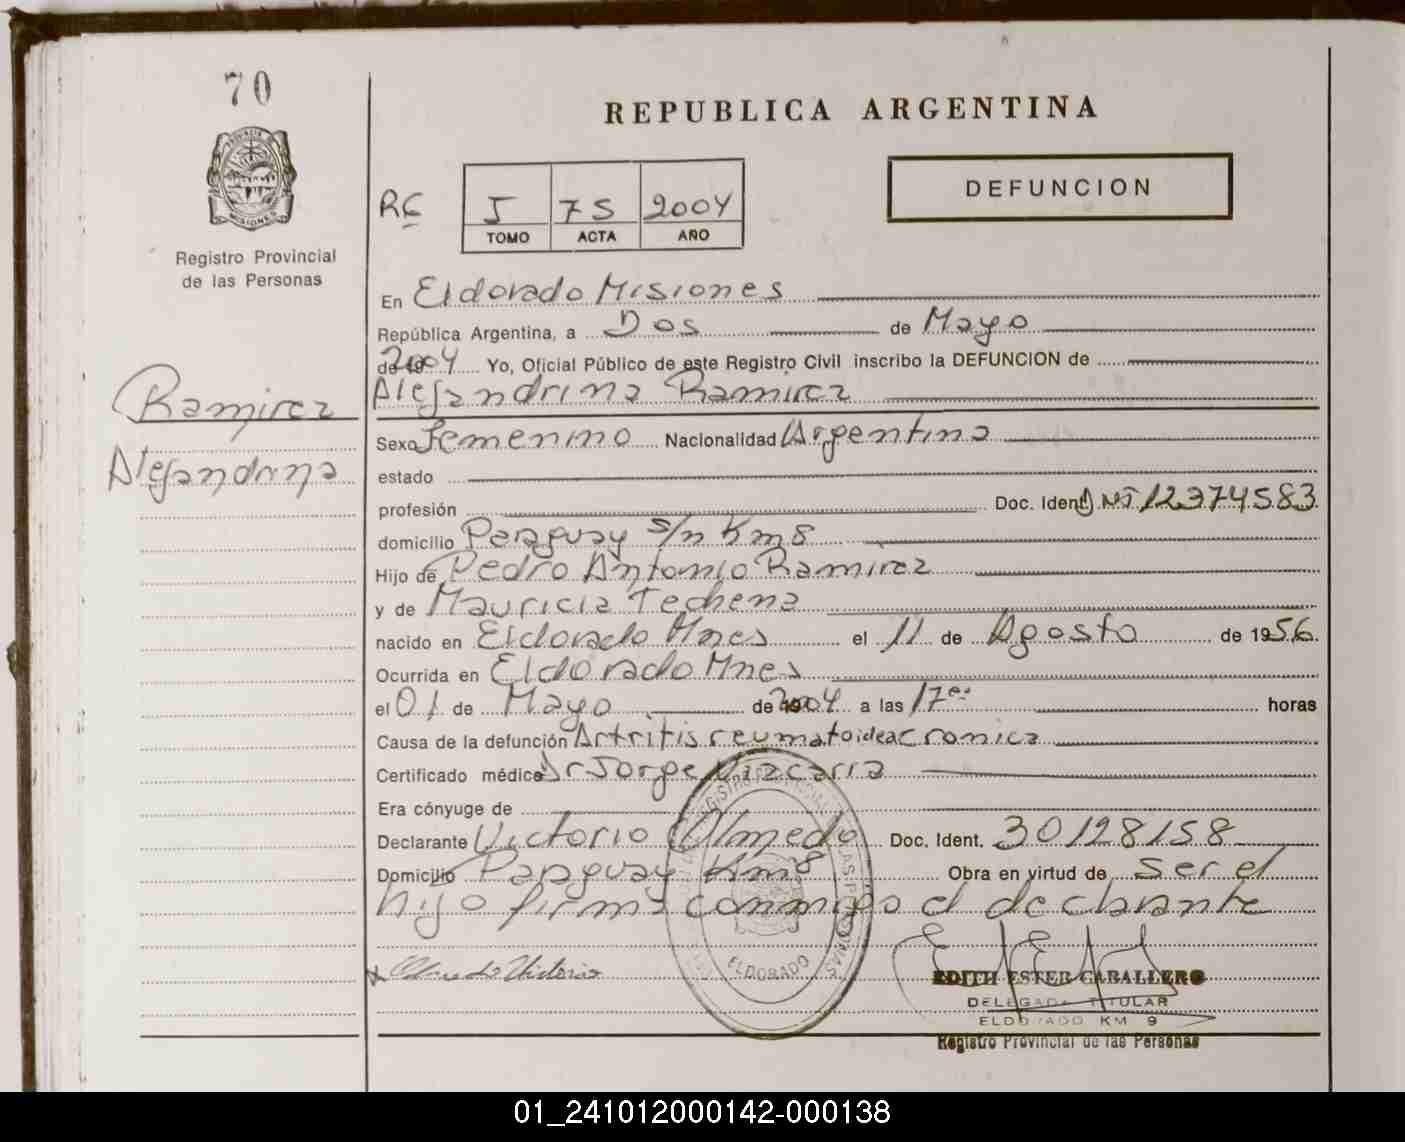 70
PROVINCIA DE
MISIONES
Registro Provincial
de las Personas
Ramirez
Alejandrina
REPUBLICA ARGENTINA
RC I 75 2004
TOMO ACTA AÑO
DEFUNCION
En Eldorado Misiones
República Argentina, a Dos de Mayo
de 2004 Yo, Oficial Público de este Registro Civil inscribo la DEFUNCION de
Alejandrina Ramirez
Sexo Femenino Nacionalidad Argentina
estado
profesión Doc. Ident. DNI 12374583
domicilio Paraguay s/n Km 8
Hijo de Pedro Antonio Ramirez
y de Mauricia Techena
nacido en Eldorado Mnes el 11 de Agosto de 1956.
Ocurrida en Eldorado Mnes
el 01 de Mayo de 2004 a las 17 horas
Causa de la defunción Artritis reumatoidea cronica
Certificado médico Dr Jorge
Era cónyuge de
Declarante Victorio Almedo Doc. Ident. 30128158
Domicilio Paraguay Km 8 Obra en virtud de ser el
hijo firma conmigo el declarante
x Victorio
ELDORADO
EDITH ESTER CABALLERO
DELEGADA TITULAR
ELDORADO KM 9
Registro Provincial de las Personas
01_241012000142-000138